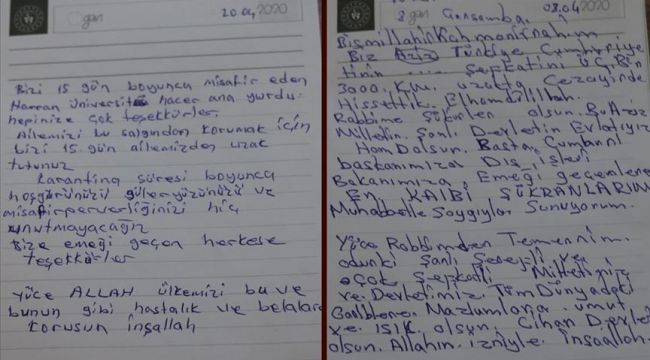 gün
20.04.2020
Bizi 15 gün boyunca misafir eden
Harran üniversitesi hacer ana yurdu.
hepinize çok teşekkürler.
Ailemizi bu salgından korumak için
bizi 15 gün ailemizden uzak
tutunuz
Karantina süresi boyunca
hoşgörünüzü güleryüzünüzü ve
misafirperverliğinizi hiç
unutmayacağız
Bize emeği geçen herkese
teşekkürler
yüce ALLAH ülkemizi bu ve
bunun gibi hastalık ve belalardan
korusun inşallah
8 gün Çarşamba. 08.04.2020
BismillahirRahmanirrahim
Biz Aziz Türkiye Cumhuriye
tinin .... Şefkatini ÜÇ BİN
3000. KM. uzakta Cezayirde
Hissettik. Elhamdilillah.
Rabbime Şükürler olsun. Bu Aziz
Milletin. Şanlı Devletin Evlatıyız
Hamdolsun. Başta Cumhur
başkanımıza Dış işleri
Bakanımıza, Emeği geçenlere
EN KALBİ ŞÜKRANLARIMI
Muhabbetle Saygıyla Sunuyorum.
Yüce Rabbimden Temennim.
odurki Şanlı Şerefli ve
çok Şefkatli Milletimiz
ve Devletimiz. Tüm Dünyadaki
Mazlumlara umut
ve IŞIK olsun. Cihan Devleti
olsun. Allahın izniyle inşaallah.